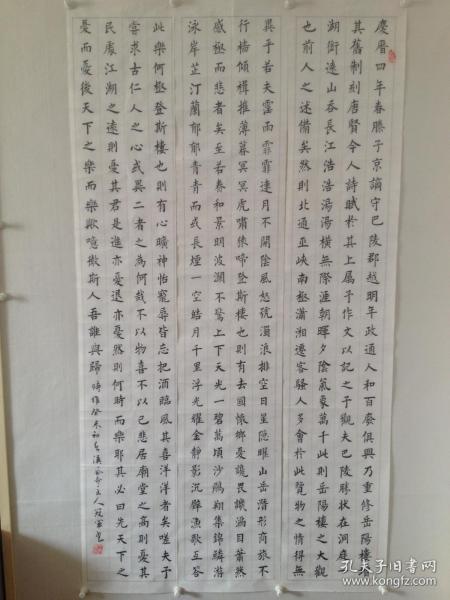 慶曆四年春滕子京謫守巴陵郡越明年政通人和百廢俱興乃重修岳陽樓增
其舊制刻唐賢今人詩賦於其上屬予作文以記之予觀夫巴陵勝狀在洞庭一
湖銜遠山吞長江浩浩湯湯橫無際涯朝暉夕陰氣象萬千此則岳陽樓之大觀
也前人之述備矣然則北通巫峽南極瀟湘遷客騷人多會於此覽物之情得無
異乎若夫霪雨霏霏連月不開陰風怒號濁浪排空日星隱曜山岳潛形商旅不
行檣傾楫摧薄暮冥冥虎嘯猿啼登斯樓也則有去國懷鄉憂讒畏譏滿目蕭然
感極而悲者矣至若春和景明波瀾不驚上下天光一碧萬頃沙鷗翔集錦鱗游
泳岸芷汀蘭郁郁青青而或長煙一空皓月千里浮光耀金靜影沉璧漁歌互答
此樂何極登斯樓也則有心曠神怡寵辱皆忘把酒臨風其喜洋洋者矣嗟夫予
嘗求古仁人之心或異二者之為何哉不以物喜不以己悲居廟堂之高則憂其
民處江湖之遠則憂其君是進亦憂退亦憂然則何時而樂耶其必曰先天下之
憂而憂後天下之樂而樂歟噫微斯人吾誰與歸 時維癸未初春 主人
孔夫子旧书网